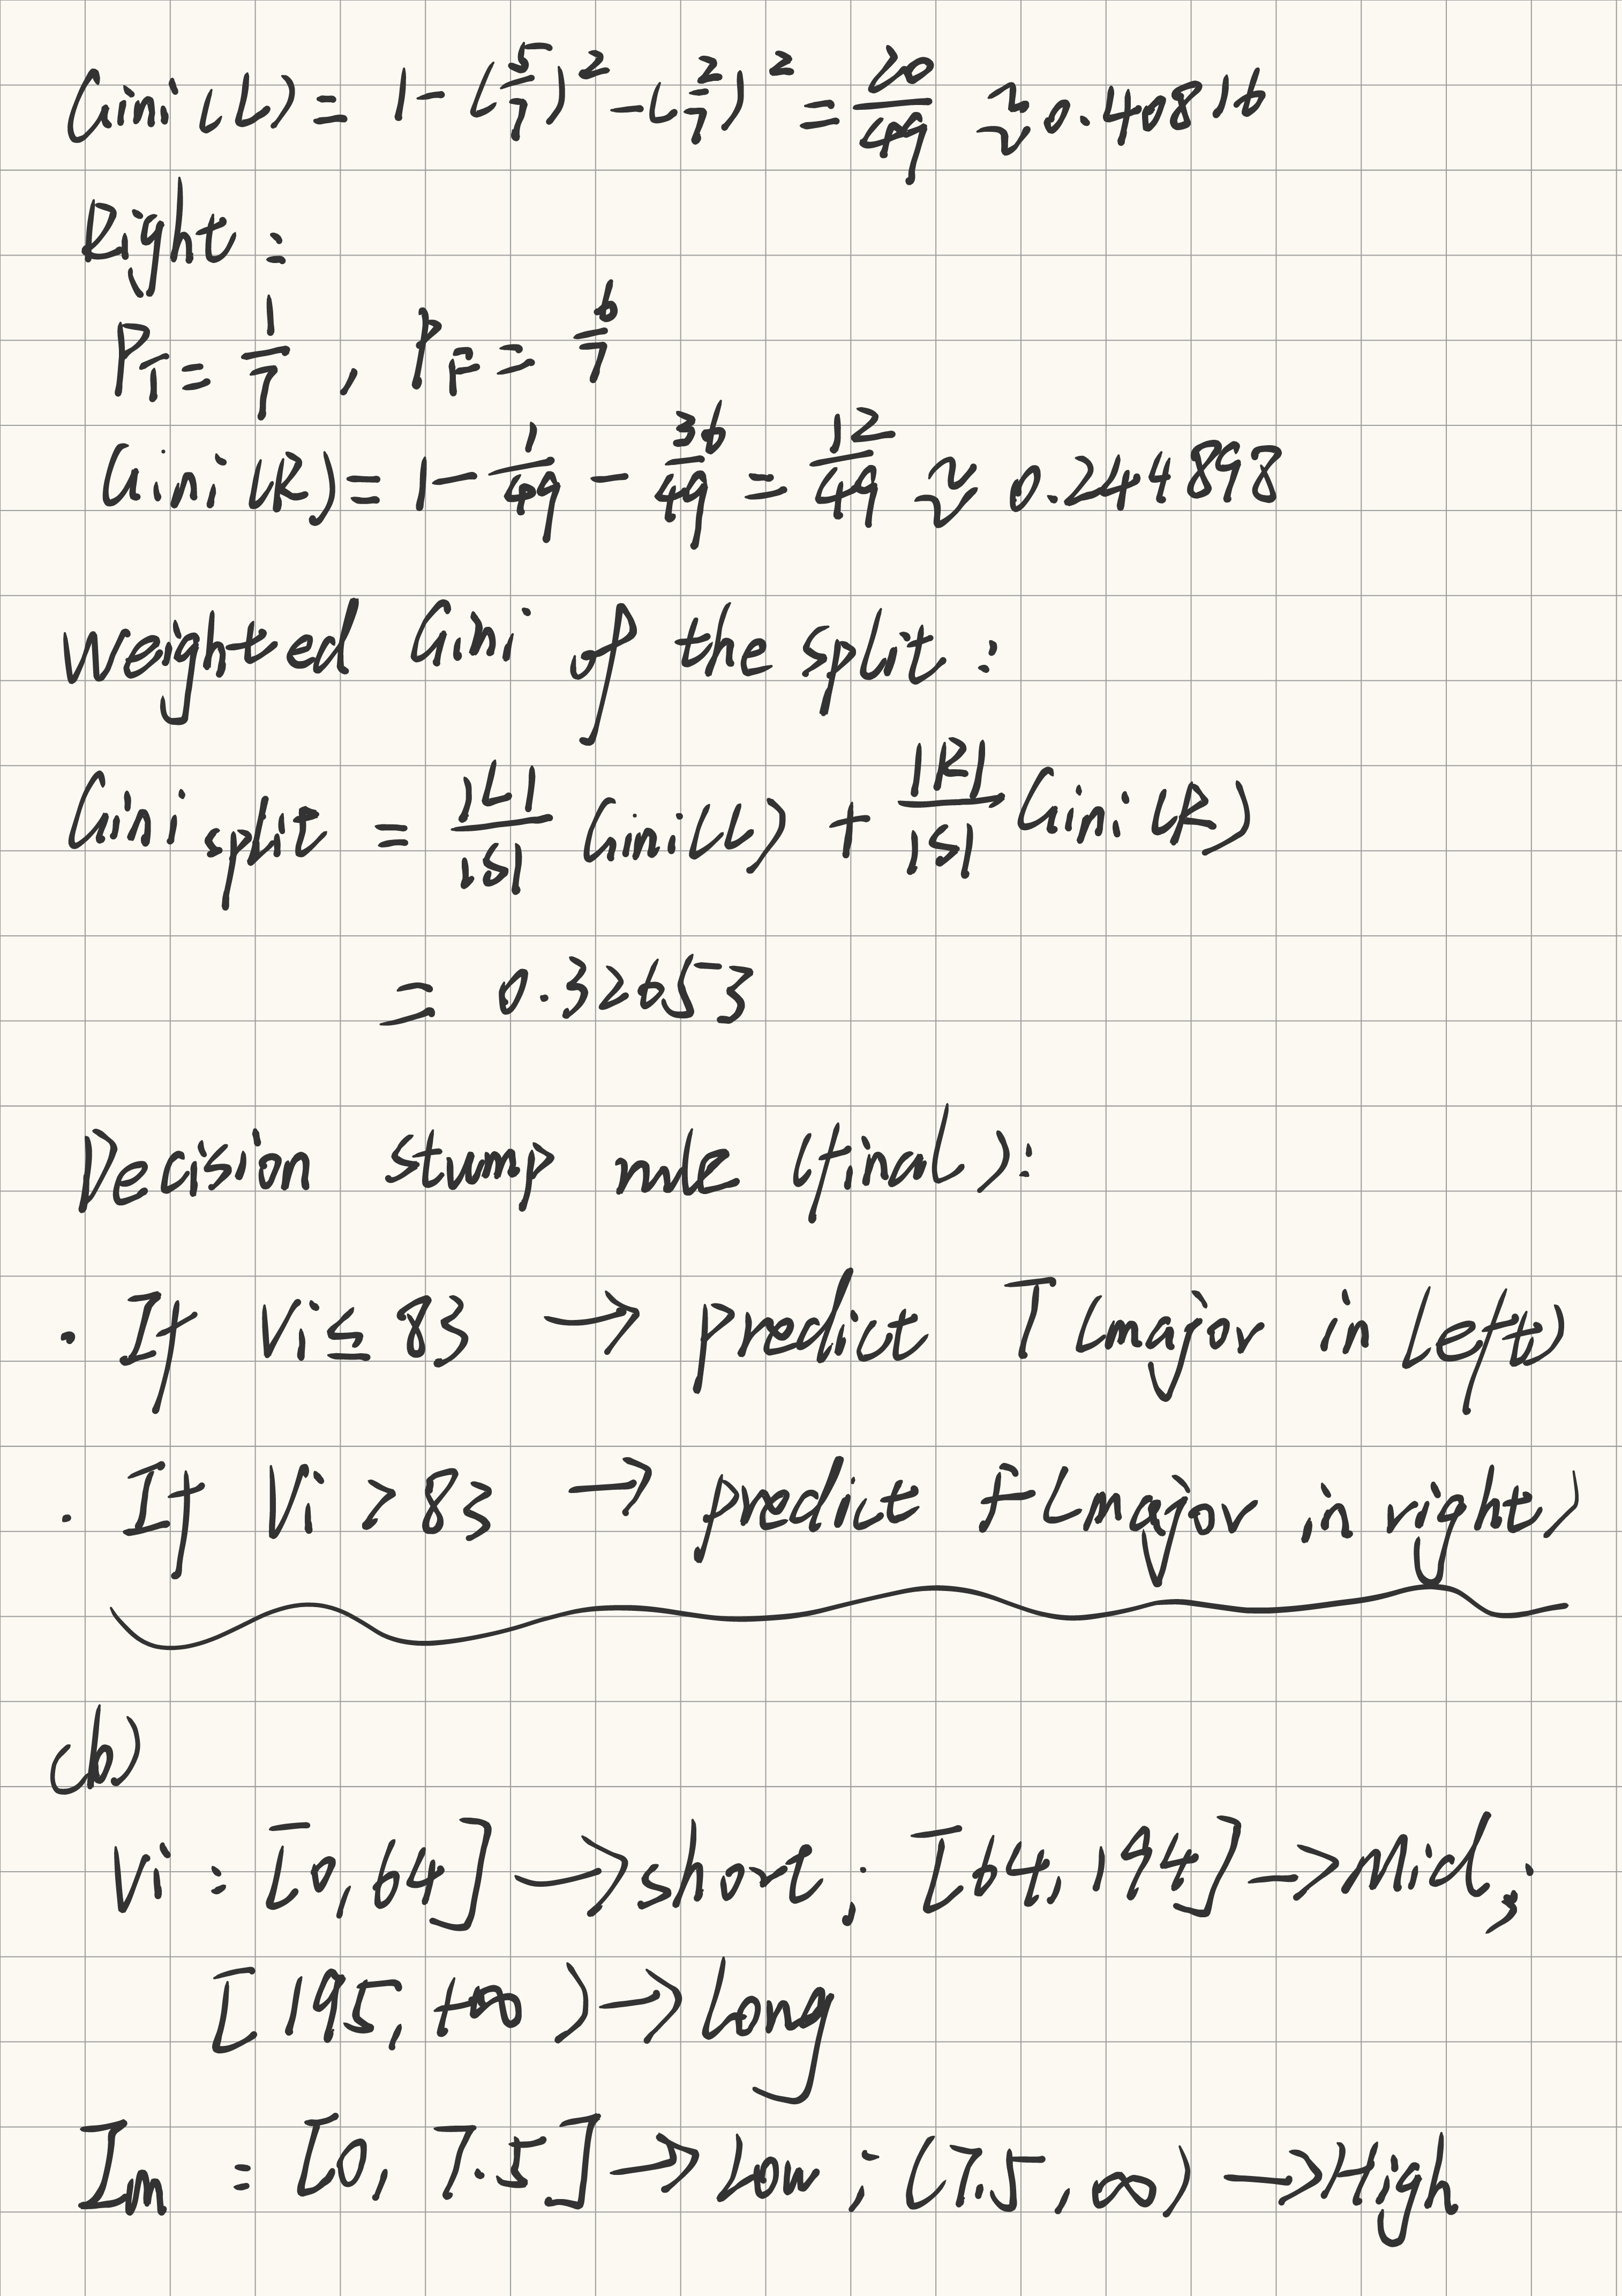 Gini(L) = 1 - (5/7)^2 - (2/7)^2 = 20/49 ≈ 0.40816
Right :
P_T = 1/7 , P_F = 6/7
Gini(R) = 1 - 1/49 - 36/49 = 12/49 ≈ 0.244898
Weighted Gini of the split :
Gini_split = |L|/|S| Gini(L) + |R|/|S| Gini(R)
= 0.32653
Decision stump rule (final):
· If Vi ≤ 83 → predict T (major in left)
· If Vi > 83 → predict F (major in right)
(b)
Vi : [0, 64] → short ; [64, 194] → Mid ;
[195, +∞) → Long
Im = [0, 7.5] → Low ; (7.5, ∞) → High